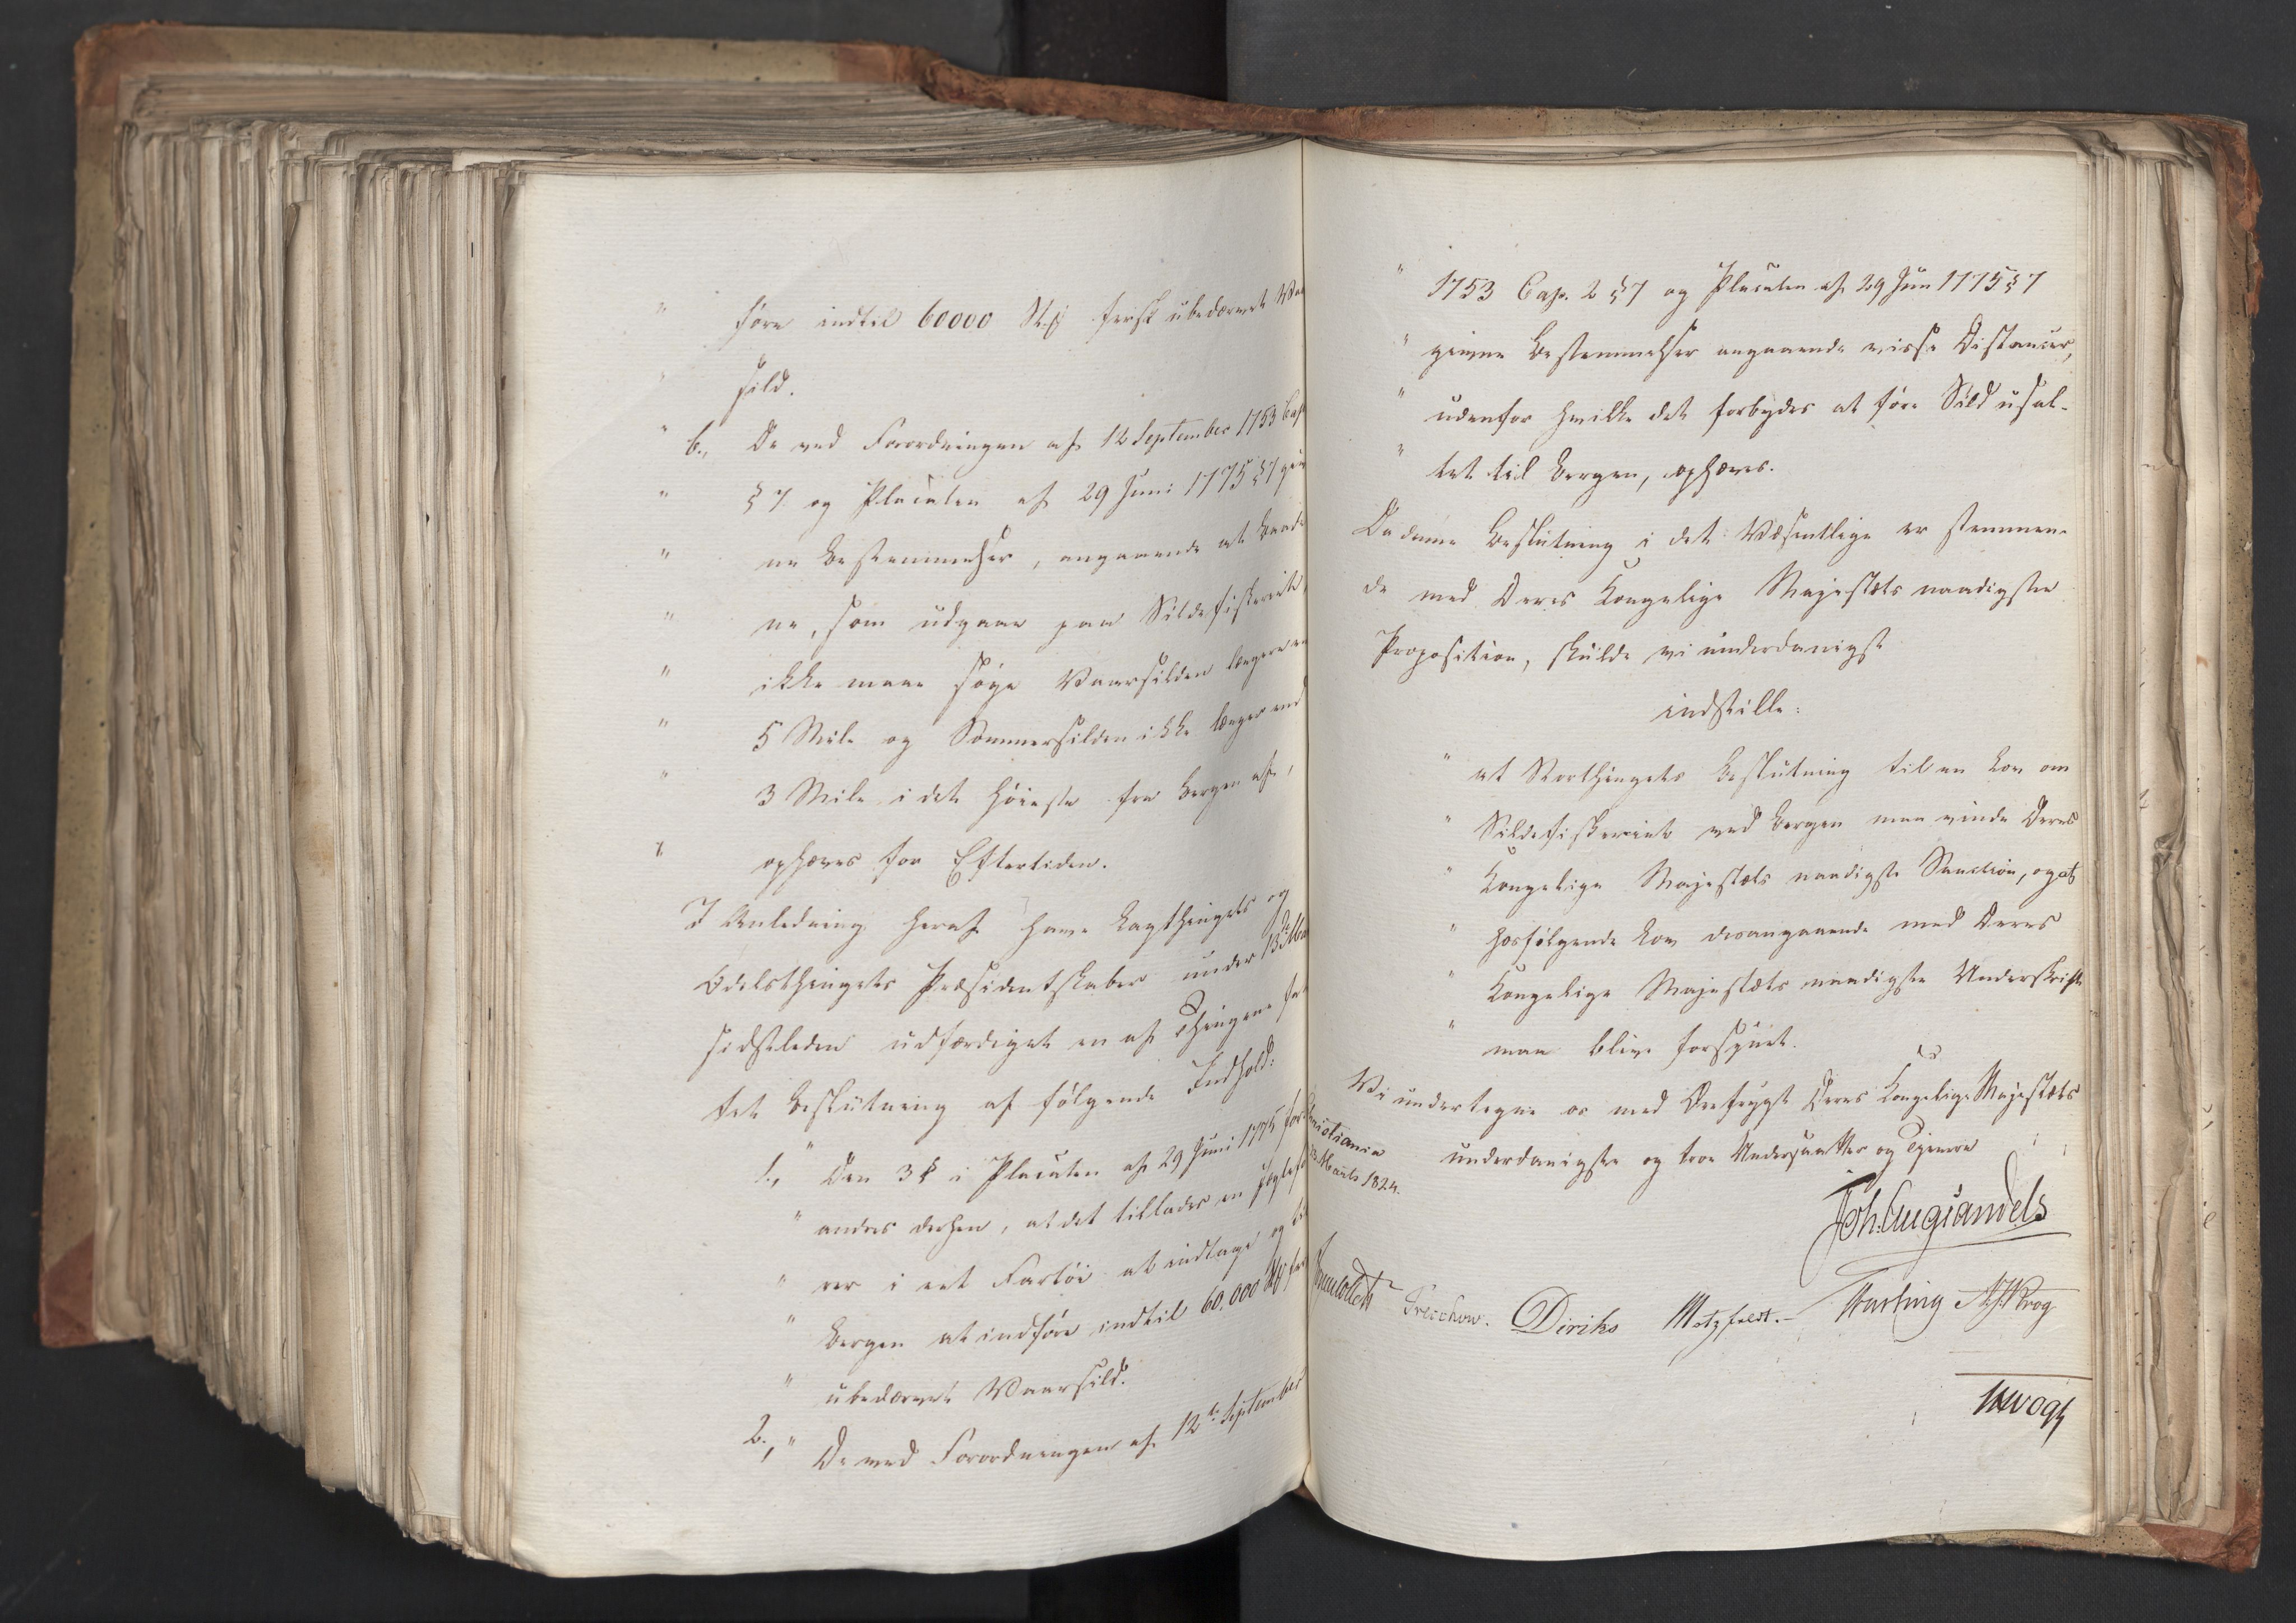 " føre indtil 60000 Stk fersk ubedærvet Vaar
" sild.
" b., De ved Forordningen af 12 September 1753 Cap
" § 7 og Placaten af 29 Juni 1775 § 7 giv
" ne Bestemmelser, angaaende at Baade
" ne, som udgaae paa Sildefiskeriet,
" ikke maae søge Vaarsilden længere en
" 5 Mile og Sommersilden ikke længer end
" 3 Mile i det Høieste fra Bergen af,
" ophæves for Eftertiden.
I Anledning heraf have Lagthingets og
Odelsthingets Præsidentskaber under 13de
sidstleden udfærdiget en af Thingene fat
tet Beslutning af følgende Indhold:
1., " Den 3 § i Placaten af 29 Juni 1775 for
" andres derhen, at det tillades en
" ver i eet Fartøi at indtage og til
" Bergen at indføre indtil 60,000 Stk fer
" ubedærvet Vaarsild.
2., " De ved Forordningen af 12te September
" 1753 Cap. 2 § 7 og Placaten af 29 Jun 1775 § 7
" givne Bestemmelser angaaende visse Distancer,
" udenfor hvilke det forbydes at føre Sild usal-
" tet til Bergen, ophæves.
Da denne Beslutning i det Væsentlige er stemmen-
de med Deres Kongelige Majestæts naadigste
Proposition, skulde vi underdanigst
indstille:
" at Storthingets Beslutning til en Lov om
" Sildefiskeriet ved Bergen maa vinde Deres
" Kongelige Majestæts naadigste Sanction, og at
" hosfølgende Lov desangaaende med Deres
" Kongelige Majestæts naadigste Underskrift
" maa blive forsynet.
Vi undertegne os med Dyb Deres Kongelige Majestæts
Christiania
underdanigste og troe Undersaatter og Tjenere
1824.
Joh. Aug: Sandels
Sommerfeldt Treschow. Diriks Motzfeldt. Fasting Krog
Vogt